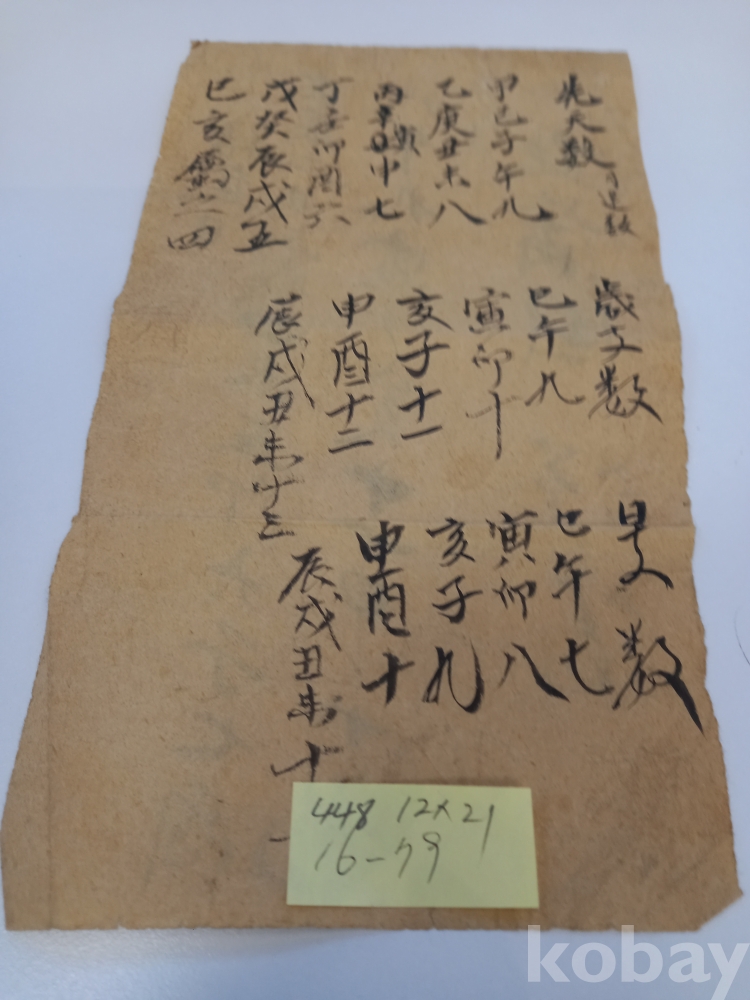 先天数
甲己子午九
乙庚丑未八
丙辛寅申七
丁壬卯酉六
戊癸辰戌五
巳亥 四
歲支数
巳午九
寅卯十
亥子十一
申酉十二
辰戌丑未十三
日支数
巳午七
寅卯八
亥子九
申酉十
辰戌丑未十一
448 12x21
16-79
kobay